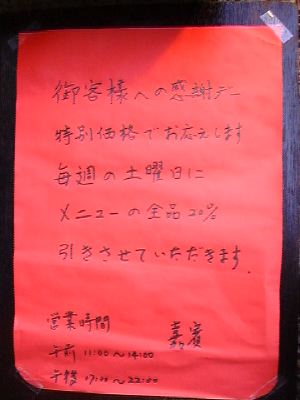 御客様への感謝デー
特別価格でお応えします
毎週の土曜日に
メニューの全品20%
引きさせていただきます.
営業時間
嘉賓
午前 11:00～14:00
午後 17:00～22:00